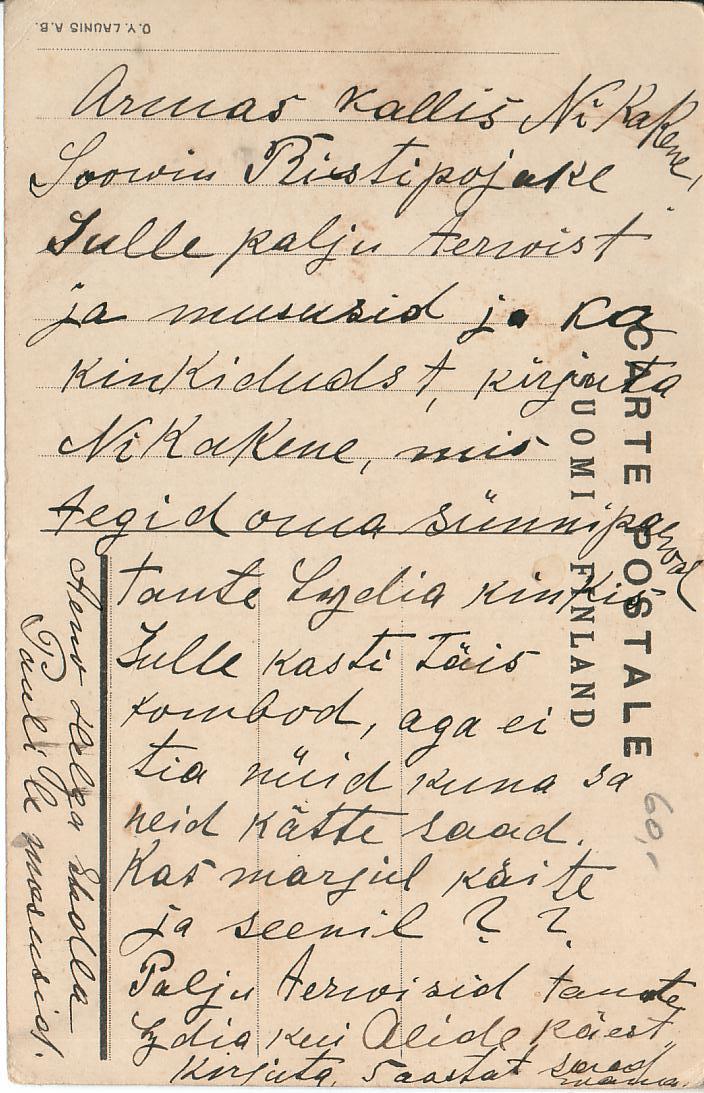 O.Y. LAUNIS A.B.
Armas kallis Nikakene,
Soowin Ristipojake
Sulle palju terwist
ja mususid ja ka
kinkidudst, kirjuta
Nikakene, mis
tegid oma sünnipäewal
tante Lydia kinkis
Sulle kasti täis
kombod, aga ei
tia nüid kuna sa
neid kätte saad.
Kas marjul käite
ja seenil ? ?
Palju terwisid tante
Lydia kui Alide käest,
Kirjuta, 5 aastat saad
Helga
Paulile mususid.
CARTE POSTALE
SUOMI FINLAND
60,-